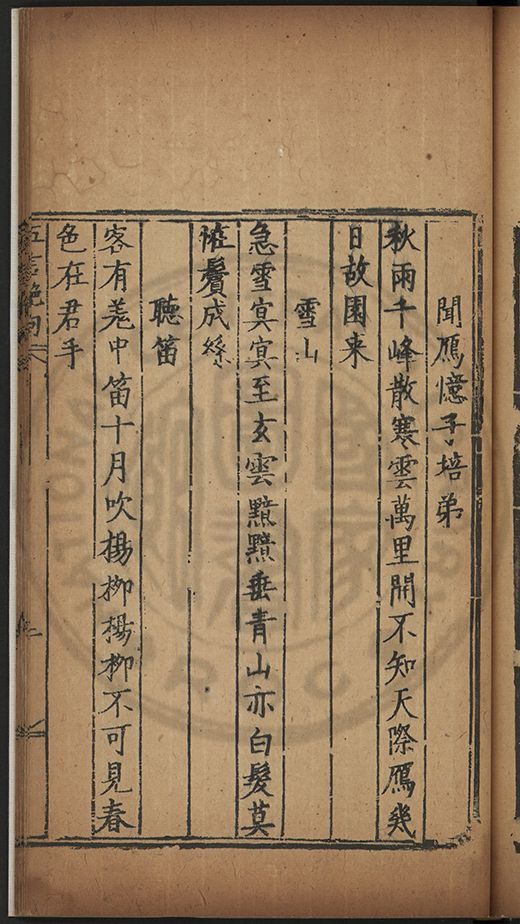 聞鴈憶子培弟
秋雨千峰散寒雲萬里開不知天際鴈幾
日故園来
雪山
急雪寞寞至玄雲黕黕垂青山亦白髮莫
恠鬢成絲
聽笛
客有羌中笛十月吹楊柳楊柳不可見春
色在君手
五言絶句